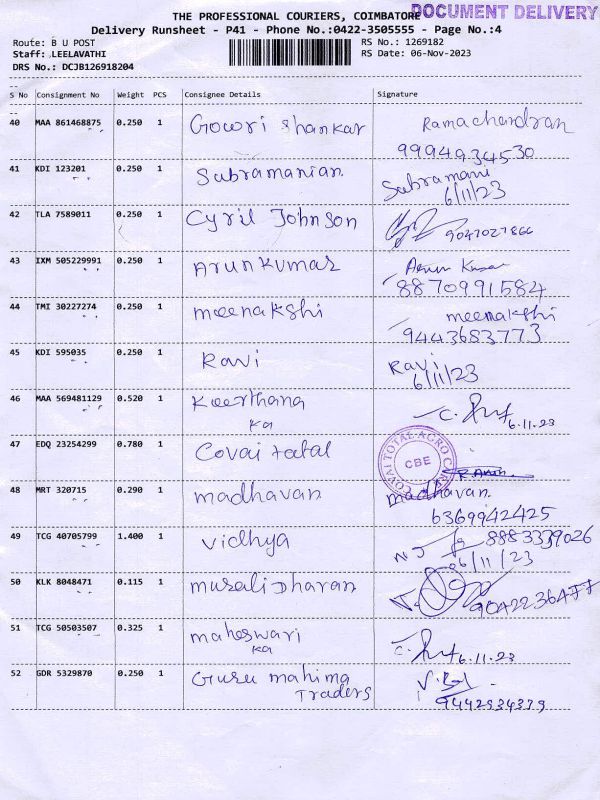 THE PROFESSIONAL COURIERS, COIMBATORE
DOCUMENT DELIVERY
Delivery Runsheet - P41 - Phone No.:0422-3505555 - Page No.:4
Route: B U POST
RS No.: 1269182
Staff: LEELAVATHI
RS Date: 06-Nov-2023
DRS No.: DCJB126918204
S No Consignment No Weight PCS Consignee Details Signature
40 MAA 861468875 0.250 1 Gowri Shankar Ramachandran
9994934530
41 KDI 123201 0.250 1 Subramanian Subramani
6/11/23
42 TLA 7589011 0.250 1 Cyril Johnson 9047027866
43 IXM 505229991 0.250 1 Arun Kumar Arun Kumar
8870991584
44 TMI 30227274 0.250 1 meenakshi meenakshi
9443683773
45 KDI 595035 0.250 1 Ravi Ravi
6/11/23
46 MAA 569481129 0.520 1 Keerthana
Ka 6.11.23
47 EDQ 23254299 0.780 1 Covai total COVAI TOTAL AGRO CBE
48 MRT 320715 0.290 1 madhavan madhavan
6369942425
49 TCG 40705799 1.400 1 vidhya 8883339026
06/11/23
50 KLK 8048471 0.115 1 muralidharan
51 TCG 50503507 0.325 1 maheswari
Ka 6.11.23
52 GDR 5329870 0.250 1 Guru mahima
Traders